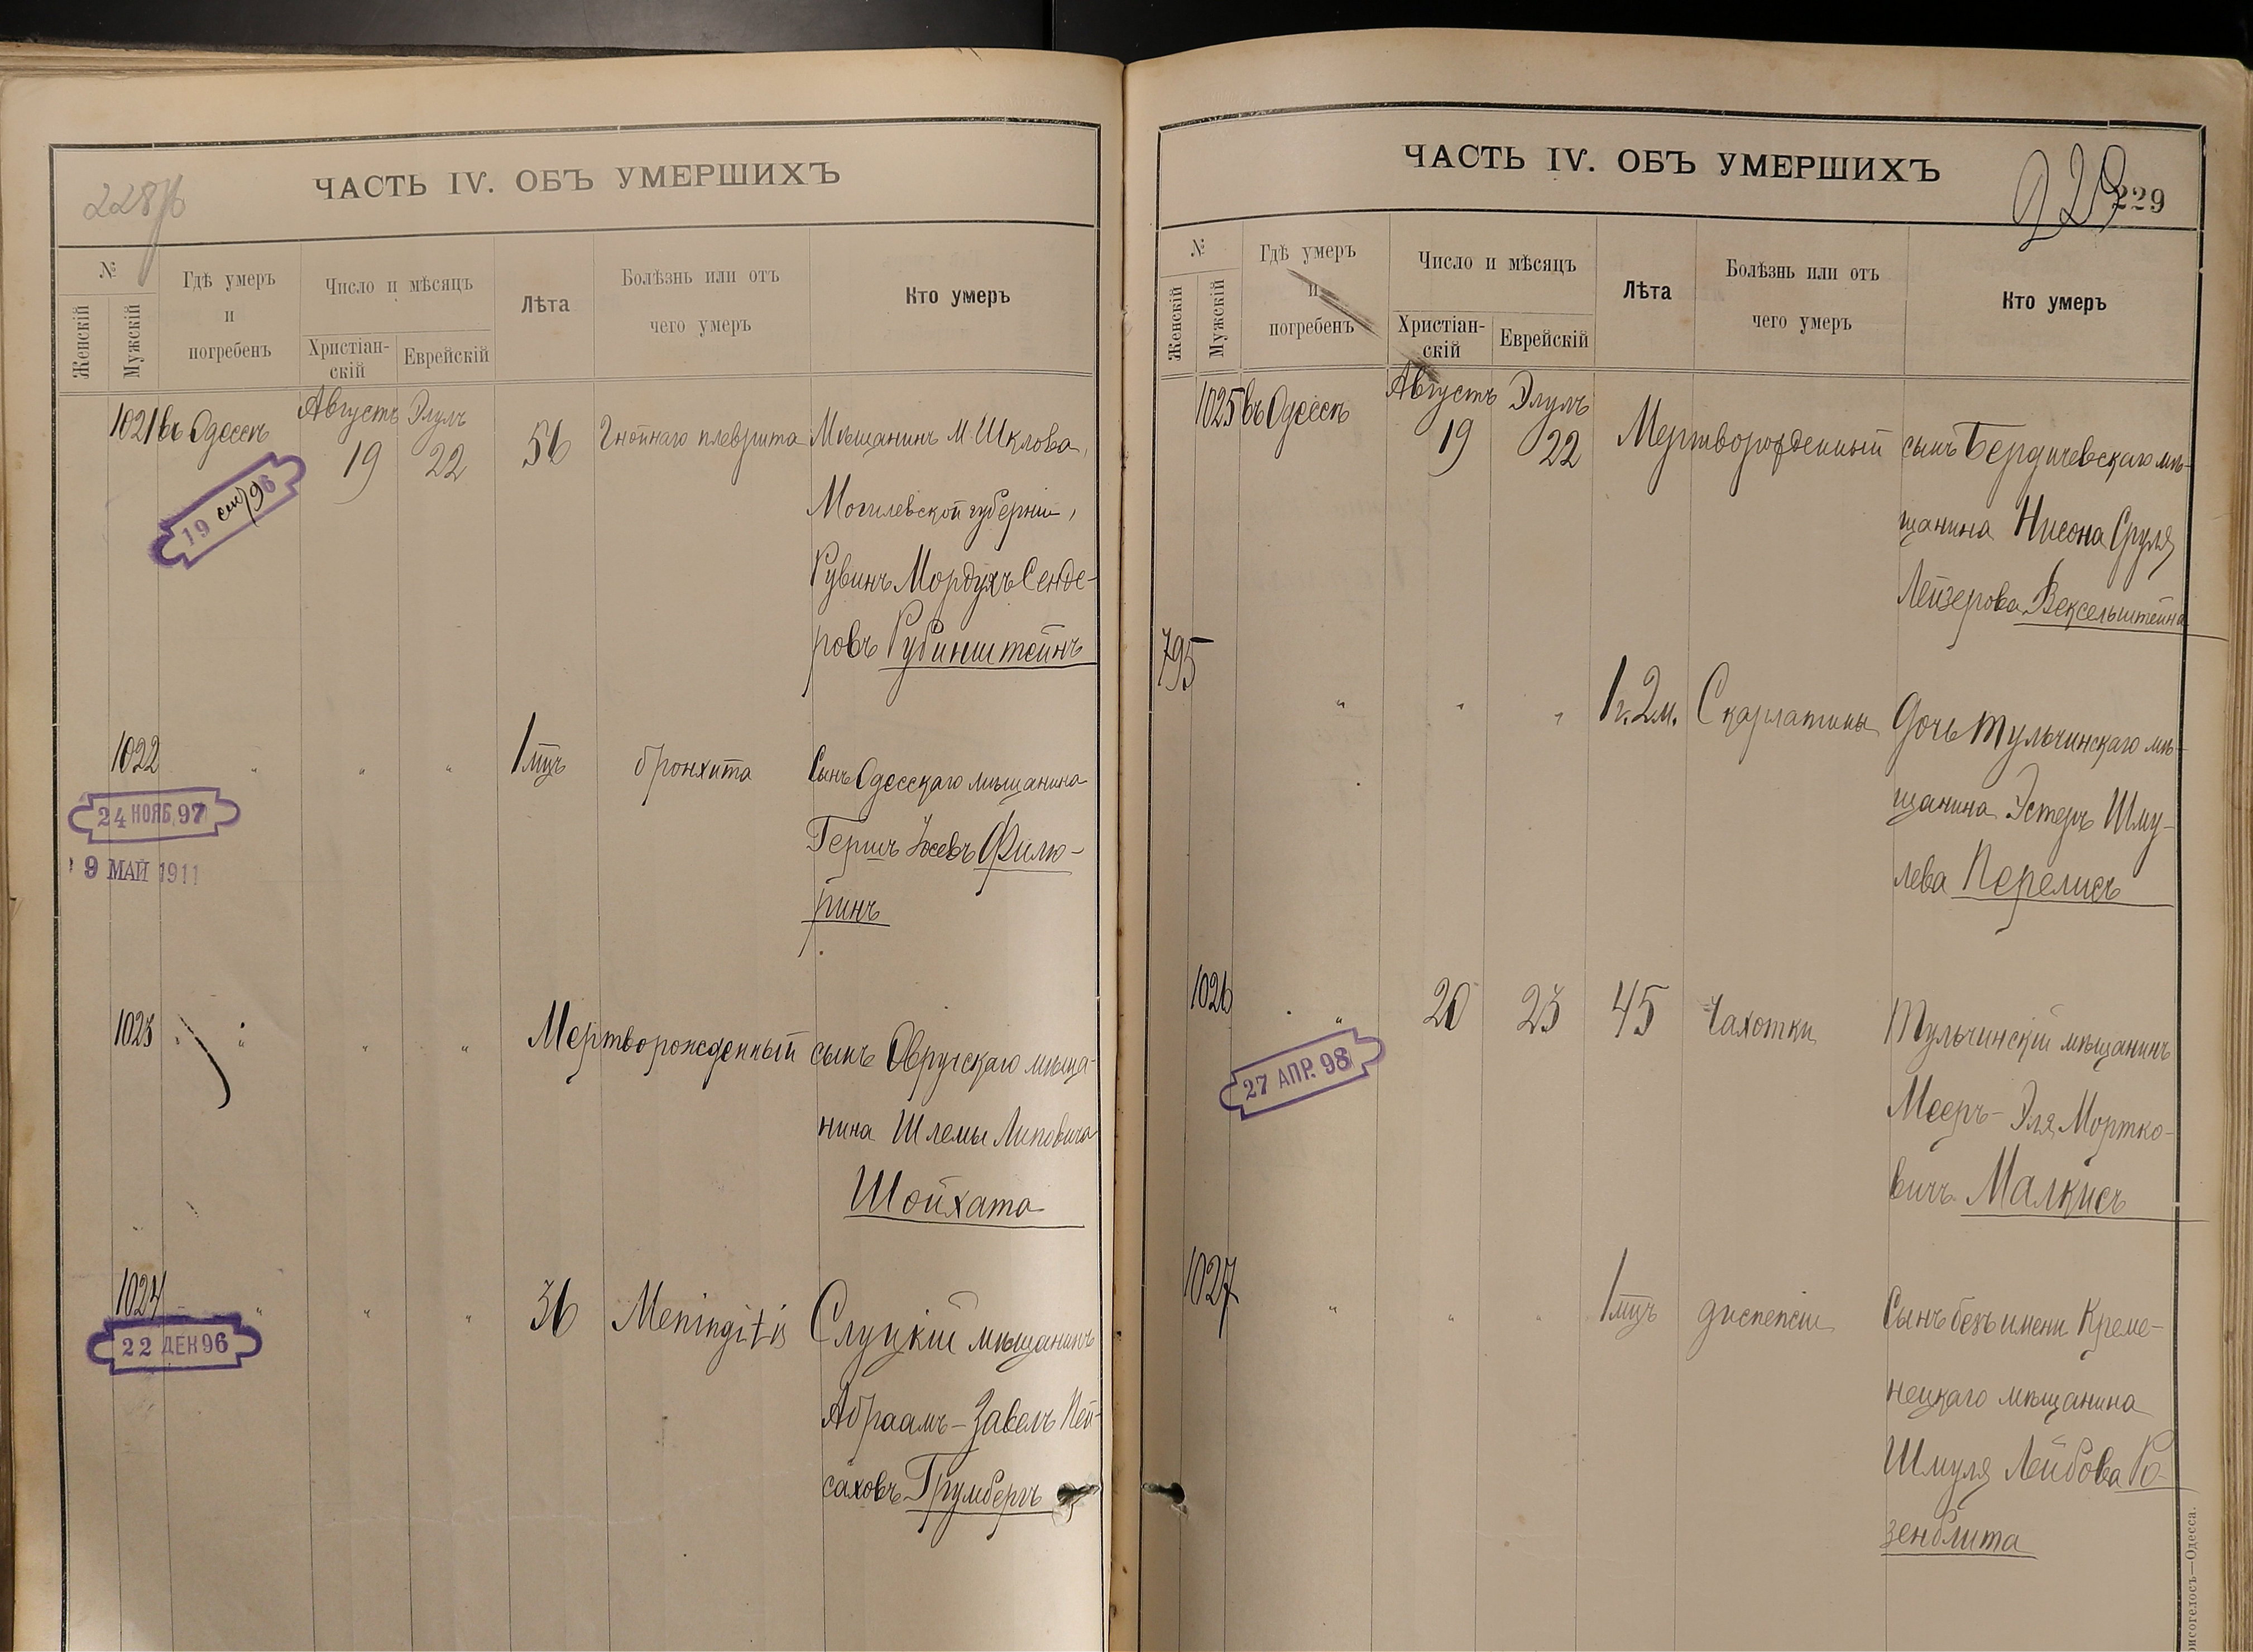 ЧАСТЬ IV. ОБЪ УМЕРШИХЪ
228
№
Женскій
Мужскій
Гдѣ умеръ
и
погребенъ
Число и мѣсяцъ
Христіан-
скій
Еврейскій
Лѣта
Болѣзнь или отъ
чего умеръ
Кто умеръ
1021 въ Одессѣ Августъ 19 Элулъ 22 56 Гнойнаго плеврита Мѣщанинъ М. Шклова,
Могилевской губерніи,
Рувинъ Мордухъ Сенде-
ровъ Рубинштейнъ
19 сен 96
1022 " " " 1 мцъ бронхита Сынъ Одесскаго мѣщанина
Гершъ Іосевъ Филю-
ринъ
24 НОЯБ. 97
9 МАЙ 1911
1023 " " " Мертворожденный сынъ Овручскаго мѣща-
нина Шлемы Липовича
Шойхата
1024 " " " 36 Meningitis Слуцкій мѣщанинъ
Абраамъ-Завелъ Пей-
саховъ Грумбергъ
22 ДЕК 96
ЧАСТЬ IV. ОБЪ УМЕРШИХЪ
229
229
№
Женскій
Мужскій
Гдѣ умеръ
и
погребенъ
Число и мѣсяцъ
Христіан-
скій
Еврейскій
Лѣта
Болѣзнь или отъ
чего умеръ
Кто умеръ
1025 въ Одессѣ Августъ 19 Элулъ 22 Мертворожденный сынъ Бердичевскаго мѣ-
щанина Нисона Сруля
Лейзерова Вексельштейна
795 " " " 1 г. 2 м. Скарлатины дочь Тульчинскаго мѣ-
щанина Эстеръ Шму-
лева Перелисъ
1026 " 20 23 45 Чахотки Тульчинскій мѣщанинъ
Мееръ-Эля Мортко-
вичъ Малкисъ
27 АПР. 98
1027 " " " 1 мцъ диспепсіи Сынъ безъ имени Креме-
нецкаго мѣщанина
Шмуля Лейбова Ро-
зенблита
Одесса.